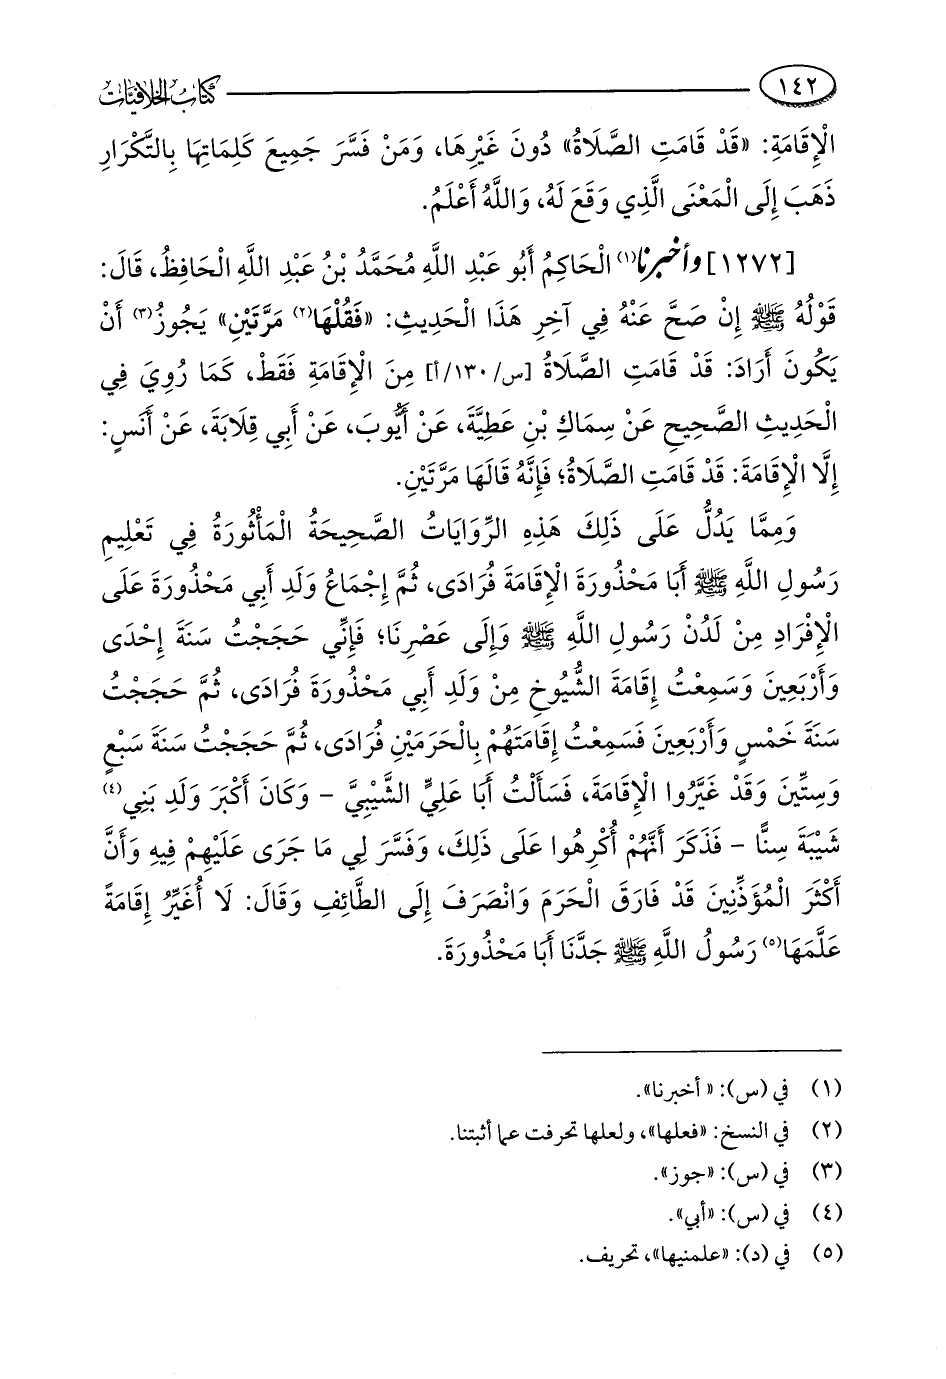 ١٤٢ كتاب الخلافيات
الْإِقَامَةِ: «قَدْ قَامَتِ الصَّلَاةُ» دُونَ غَيْرِهَا، وَمَنْ فَسَّرَ جَمِيعَ كَلِمَاتِهَا بِالتَّكْرَارِ
ذَهَبَ إِلَى الْمَعْنَى الَّذِي وَقَعَ لَهُ، وَاللَّهُ أَعْلَمُ.
[١٢٧٢] وأخبرنا(١) الْحَاكِمُ أَبُو عَبْدِ اللَّهِ مُحَمَّدُ بْنُ عَبْدِ اللَّهِ الْحَافِظُ، قَالَ:
قَوْلُهُ ﷺ إِنْ صَحَّ عَنْهُ فِي آخِرِ هَذَا الْحَدِيثِ: «فَقُلْهَا(٢) مَرَّتَيْنِ» يَجُوزُ(٣) أَنْ
يَكُونَ أَرَادَ: قَدْ قَامَتِ الصَّلَاةُ [س/١٣٠/أ] مِنَ الْإِقَامَةِ فَقَطْ، كَمَا رُوِيَ فِي
الْحَدِيثِ الصَّحِيحِ عَنْ سِمَاكِ بْنِ عَطِيَّةَ، عَنْ أَيُّوبَ، عَنْ أَبِي قِلَابَةَ، عَنْ أَنَسٍ:
إِلَّا الْإِقَامَةَ: قَدْ قَامَتِ الصَّلَاةُ؛ فَإِنَّهُ قَالَهَا مَرَّتَيْنِ.
وَمِمَّا يَدُلُّ عَلَى ذَلِكَ هَذِهِ الرِّوَايَاتُ الصَّحِيحَةُ الْمَأْثُورَةُ فِي تَعْلِيمِ
رَسُولِ اللَّهِ ﷺ أَبَا مَحْذُورَةَ الْإِقَامَةَ فُرَادَى، ثُمَّ إِجْمَاعُ وَلَدِ أَبِي مَحْذُورَةَ عَلَى
الْإِفْرَادِ مِنْ لَدُنْ رَسُولِ اللَّهِ ﷺ وَإِلَى عَصْرِنَا؛ فَإِنِّي حَجَجْتُ سَنَةَ إِحْدَى
وَأَرْبَعِينَ وَسَمِعْتُ إِقَامَةَ الشُّيُوخِ مِنْ وَلَدِ أَبِي مَحْذُورَةَ فُرَادَى، ثُمَّ حَجَجْتُ
سَنَةَ خَمْسٍ وَأَرْبَعِينَ فَسَمِعْتُ إِقَامَتَهُمْ بِالْحَرَمَيْنِ فُرَادَى، ثُمَّ حَجَجْتُ سَنَةَ سَبْعٍ
وَسِتِّينَ وَقَدْ غَيَّرُوا الْإِقَامَةَ، فَسَأَلْتُ أَبَا عَلِيٍّ الشَّيْبِيَّ - وَكَانَ أَكْبَرَ وَلَدِ بَنِي(٤)
شَيْبَةَ سِنًّا - فَذَكَرَ أَنَّهُمْ أُكْرِهُوا عَلَى ذَلِكَ، وَفَسَّرَ لِي مَا جَرَى عَلَيْهِمْ فِيهِ وَأَنَّ
أَكْثَرَ الْمُؤَذِّنِينَ قَدْ فَارَقَ الْحَرَمَ وَانْصَرَفَ إِلَى الطَّائِفِ وَقَالَ: لَا أُغَيِّرُ إِقَامَةً
عَلَّمَهَا(٥) رَسُولُ اللَّهِ ﷺ جَدَّنَا أَبَا مَحْذُورَةَ.
(١) في (س): «أخبرنا».
(٢) في النسخ: «فعلها»، ولعلها تحرفت عما أثبتنا.
(٣) في (س): «جوز».
(٤) في (س): «أبي».
(٥) في (د): «علمنيها»، تحريف.